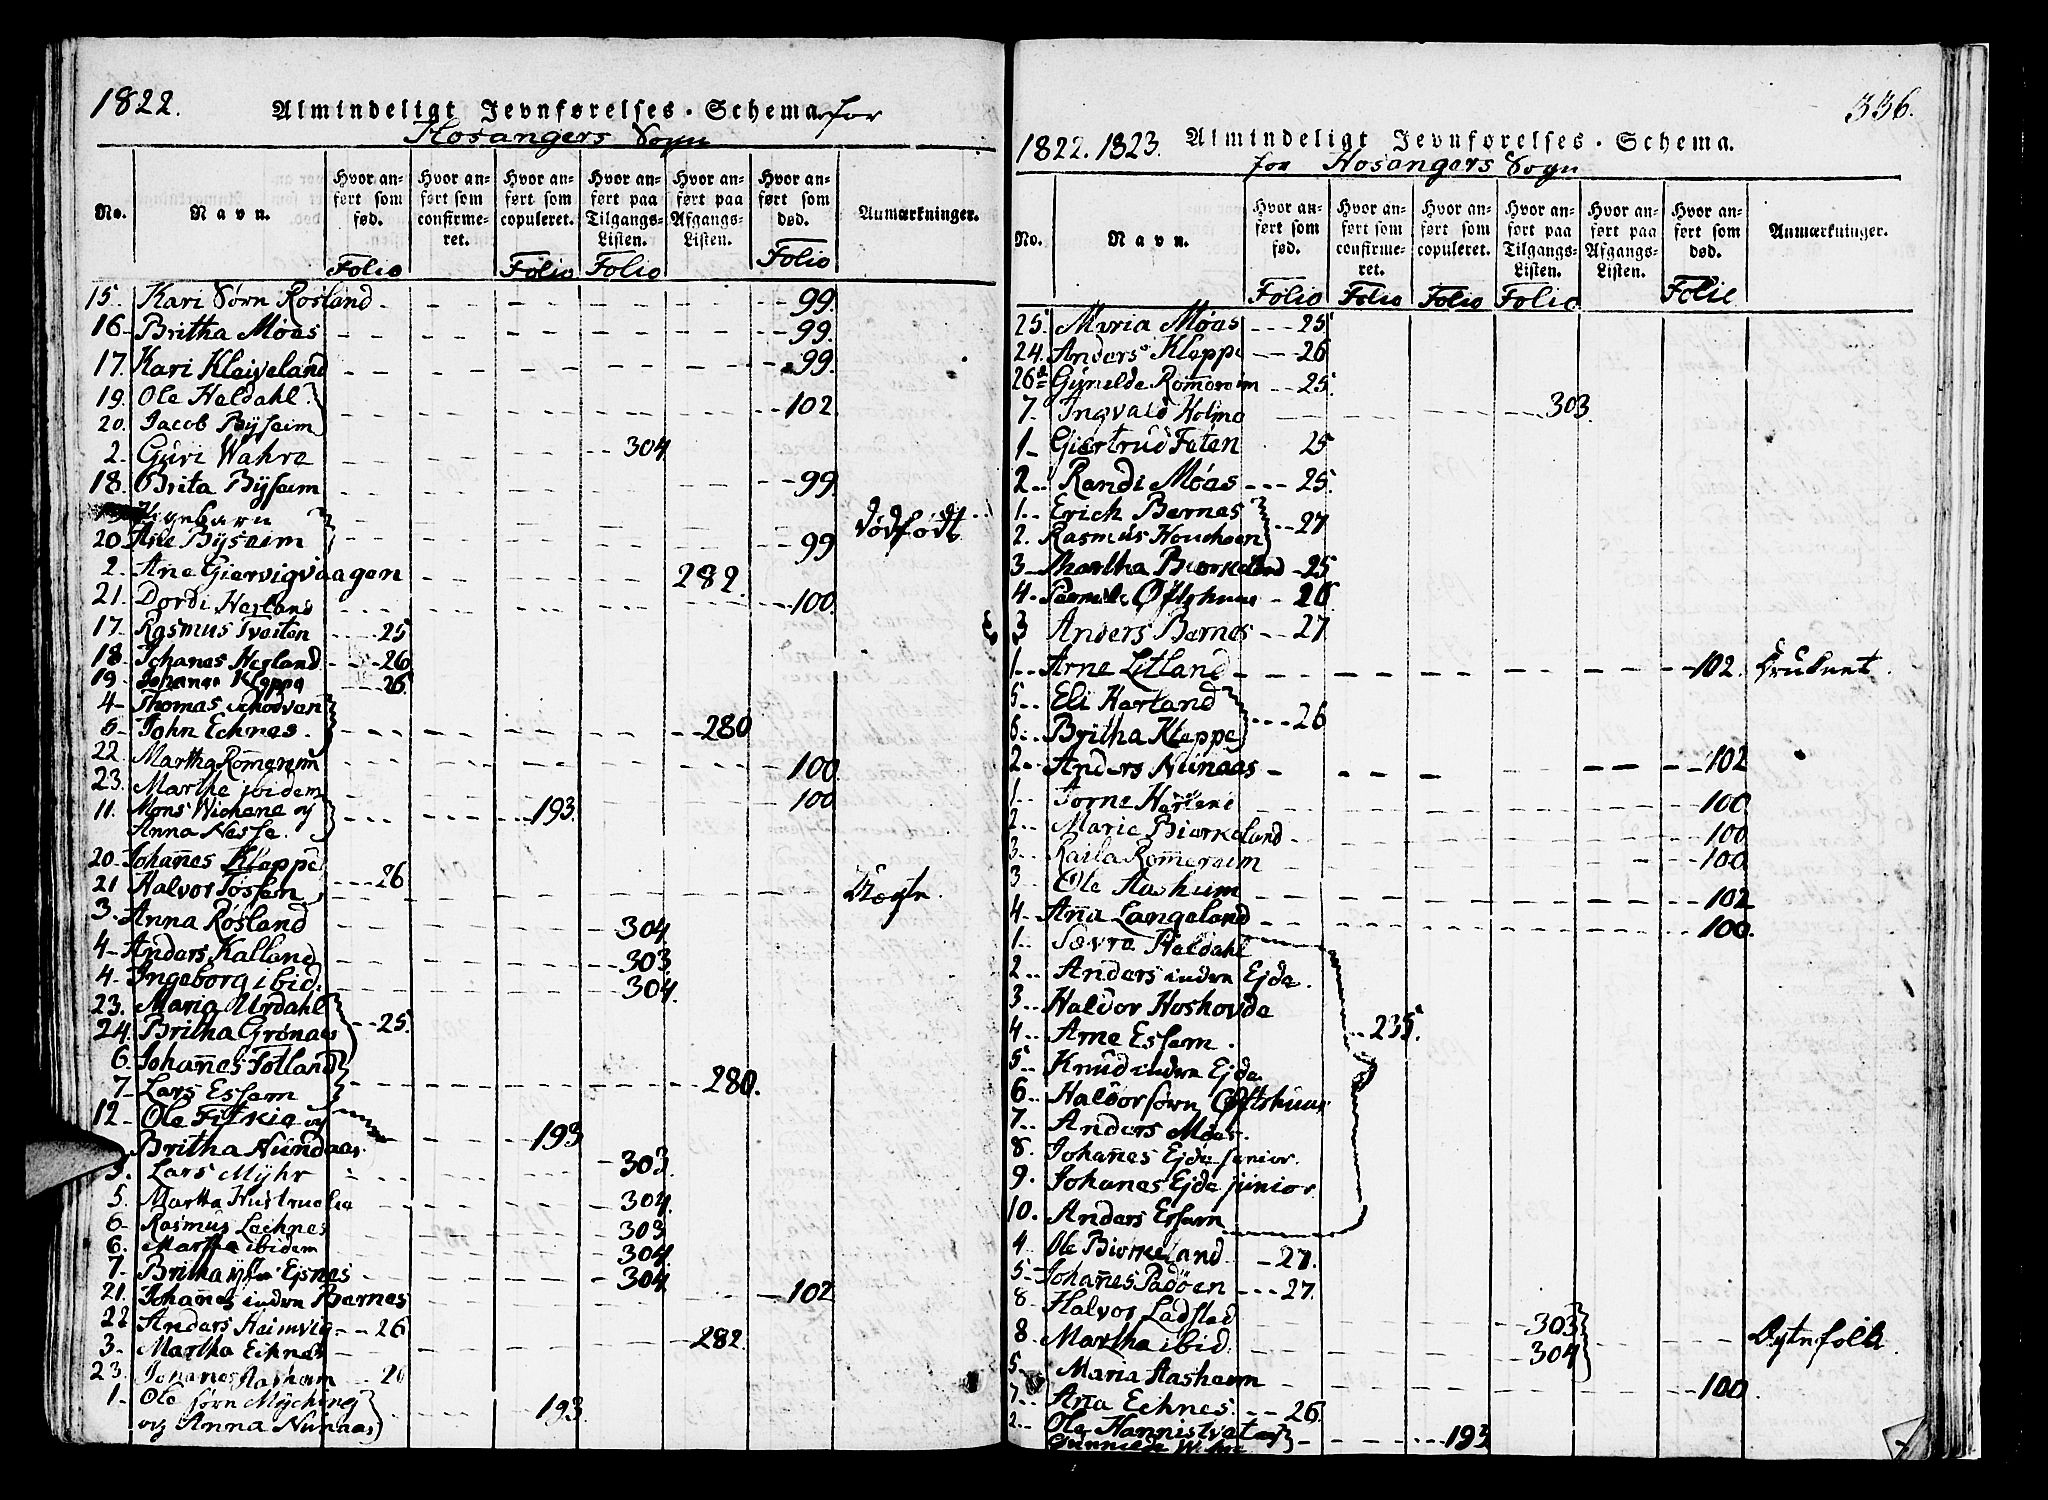 1822.
Almindeligt Jevnførelses-Schema for
Hosangers Sogn
No.
Navn.
Hvor anført som fød.
Hvor anført som confirmeret.
Hvor anført som copuleret.
Hvor anført paa Tilgangs-Listen.
Hvor anført paa Afgangs-Listen.
Hvor anført som død.
Anmærkninger.
Folio Folio Folio Folio
15. Kari Sørn Rosland 99.
16 Britha Móas 99.
17. Kari Kleiveland 99.
19. Ole Heldahl
20. Jacob Bÿseim 102
2. Guri Wahre 304
18. Brita Bÿseim 99.
Pigebarn dødfødt
20 Ane Bÿseim 99
2. Ane Giervigvaagen 282.
21. Dordi Herland 100.
17. Rasmus Tveiten 25
18. Johanes Herland 26
19 Johanes Kleppe 26
4 Thomas
5 John Echnes. 280
22. Martha Romereim 100
23. Marthe ibidem 100
11. Mons Wichene og
Anna Nesse. 193.
20 Johan̄es Kleppe
21 Halvor Tossem 26 Døgle
3. Anna Rosland 304.
4 Anders Kalland 303
4. Ingeborg ibid. 304.
23. Maria Urdahl
24. Britha Grónaas 25.
6. Johan̄es Fotland
7. Lars Essem 280.
12 Ole Fitskie og
Britha Nundaas 193
5. Lars Mÿhr 303.
5. Martha Hustrue 304
6 Rasmus Lechnes 303
6. Martha ibidem 304
7. Britha Ejsnes 304
21. Johan̄es indre Bernes 102
22 Anders Heimvig 26
3. Martha Eiknes 282.
23. Johanes Aasheim 26
1. Ole sørn Mÿching
og Anna Nunaas 193
336.
1822. 1823. Almindeligt Jevnførelses-Schema.
for Hosangers Sogn
No.
Navn.
Hvor anført som fød.
Hvor anført som confirmeret.
Hvor anført som copuleret.
Hvor anført paa Tilgangs-Listen.
Hvor anført paa Afgangs-Listen.
Hvor anført som død.
Anmærkninger.
Folio Folio Folio Folio Folie
25. Maria Móas 25
24. Anders Kleppe 26
26 Gunelde Romereim 25.
7. Ingvald Holme 303
1 Giertrud Foten 25
2 Randi Móas 25.
1 Erich Bernes
2. Rasmus Houcheen 27
3 Martha Biørkeland 25
4. Øftshuus 26
3 Anders Bernes 27
1 Arne Litland 102. Druknet.
5 Eli Herland
6. Britha Kleppe 26
2. Anders Nünaas 102
1 Torne Herland 100
2 Marie Biørkeland 100
3 Raila Romereim 100
3 Ole Aasheim 102
4. An̄a Langeland 100.
1. Sævre Heldahl
2 Anders indre Ejde.
3 Haldor Hoshovde
4 Arne Essem.
5. Knud indre Ejde
6 Haldor sørn Øftshuus
7. Anders Móas.
8. Johan̄es Ejde senior.
9. Johanes Ejde junior.
10. Anders Essem 235.
4 Ole Biørkeland 27.
5 Johan̄es Padøen 27.
8 Halvor Ladsted 303
8. Martha ibid. 304 Dÿtnefolk.
5. Maria Aasheim 100
7. An̄a Echnes. 26.
2. Ole Hannistvat og
Gunnilde 193